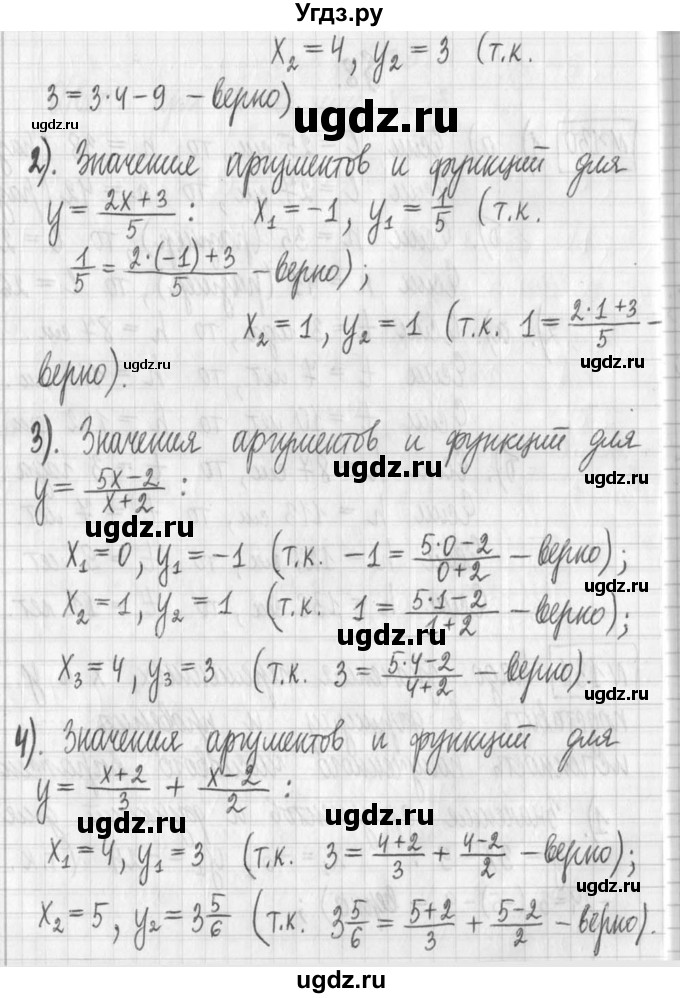 Угдз.ру
x₂ = 4, y₂ = 3 (т.к.
3 = 3·4 − 9 − верно)
ugdz.ru
ugdz.ru
ugdz.ru
2). Значение аргументов и функций для
y = (2x+3)/5 : x₁ = −1, y₁ = 1/5 (т.к.
ugdz.ru
ugdz.ru
1/5 = (2·(−1)+3)/5 − верно);
x₂ = 1, y₂ = 1 (т.к. 1 = (2·1+3)/5 −
ugdz.ru
верно).
ugdz.ru
3). Значения аргументов и функций для
ugdz.ru
y = (5x−2)/(x+2) :
ugdz.ru
ugdz.ru
x₁ = 0, y₁ = −1 (т.к. −1 = (5·0−2)/(0+2) − верно);
x₂ = 1, y₂ = 1 (т.к. 1 = (5·1−2)/(1+2) − верно);
ugdz.ru
x₃ = 4, y₃ = 3 (т.к. 3 = (5·4−2)/(4+2) − верно).
ugdz.ru
4). Значения аргументов и функций для
ugdz.ru
y = (x+2)/3 + (x−2)/2 :
ugdz.ru
ugdz.ru
x₁ = 4, y₁ = 3 (т.к. 3 = (4+2)/3 + (4−2)/2 − верно);
ugdz.ru
x₂ = 5, y₂ = 3 5/6 (т.к. 3 5/6 = (5+2)/3 + (5−2)/2 − верно).
ugdz.ru
ugdz.ru